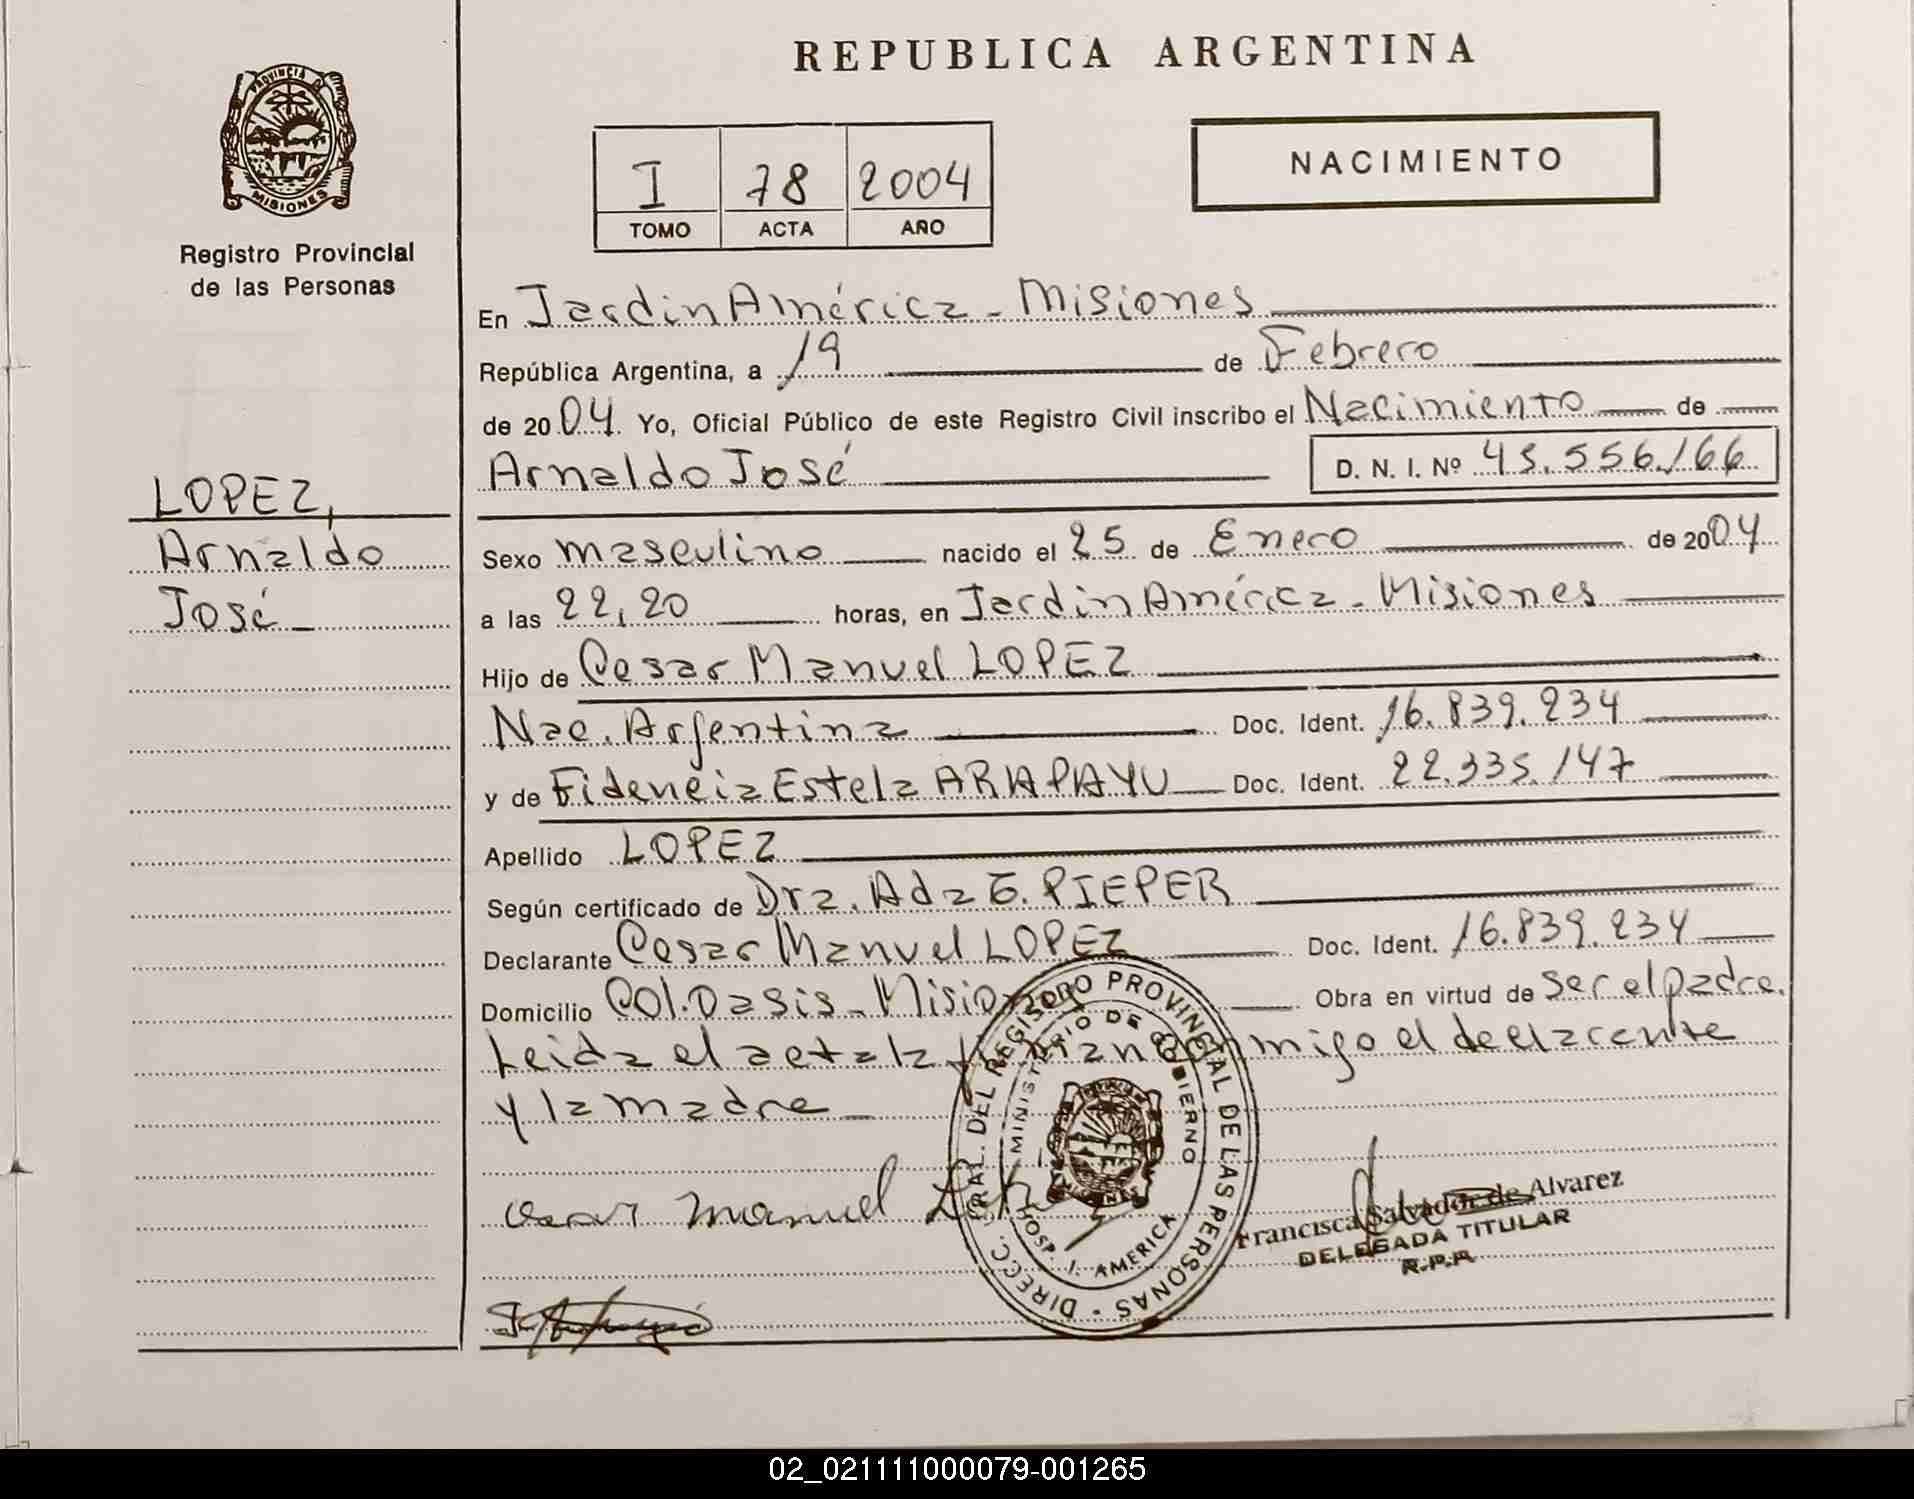 REPUBLICA ARGENTINA
PROVINCIA D MISIONES
Registro Provincial
de las Personas
I 78 2004
TOMO ACTA AÑO
NACIMIENTO
En Jardin América - Misiones
República Argentina, a 19 de Febrero
de 2004 Yo, Oficial Público de este Registro Civil inscribo el Nacimiento de
Arnaldo José D. N. I. Nº 45.556.166
LOPEZ,
Arnaldo
José
Sexo masculino nacido el 25 de Enero de 2004
a las 22,20 horas, en Jardin América - Misiones
Hijo de Cesar Manuel LOPEZ
Nac. Argentina Doc. Ident. 16.839.234
y de Fidencia Estela ARAPAYU Doc. Ident. 22.335.147
Apellido LOPEZ
Según certificado de Dra. Ada E. PIEPER
Declarante Cesar Manuel LOPEZ Doc. Ident. 16.839.234
Domicilio Col. Oasis - Misiones Obra en virtud de ser el padre.
Leida el acta la firman conmigo el declarante
y la madre
Cesar Manuel
DIRECC. GRAL. DEL REGISTRO PROVINCIAL DE LAS PERSONAS
MINISTERIO DE GOBIERNO
HOSP. J. AMERICA
Francisca Salvador de Alvarez
DELEGADA TITULAR
R.P.P.
02_021111000079-001265